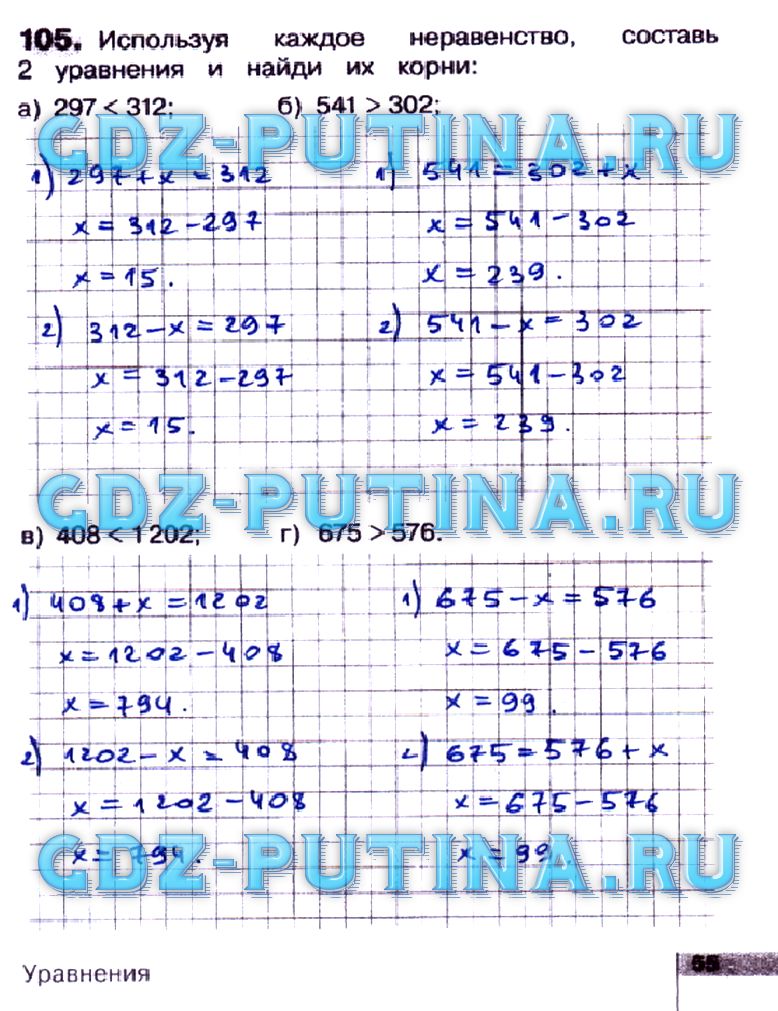 105. Используя каждое неравенство, составь
2 уравнения и найди их корни:
а) 297 < 312; б) 541 > 302;
GDZ-PUTINA.RU
1) 297 + x = 312
x = 312 - 297
x = 15.
2) 312 - x = 297
x = 312 - 297
x = 15.
1) 541 = 302 + x
x = 541 - 302
x = 239.
2) 541 - x = 302
x = 541 - 302
x = 239.
GDZ-PUTINA.RU
в) 408 < 1 202; г) 675 > 576.
1) 408 + x = 1202
x = 1202 - 408
x = 794.
2) 1202 - x = 408
x = 1202 - 408
x = 794.
1) 675 - x = 576
x = 675 - 576
x = 99.
2) 675 = 576 + x
x = 675 - 576
x = 99.
GDZ-PUTINA.RU
Уравнения